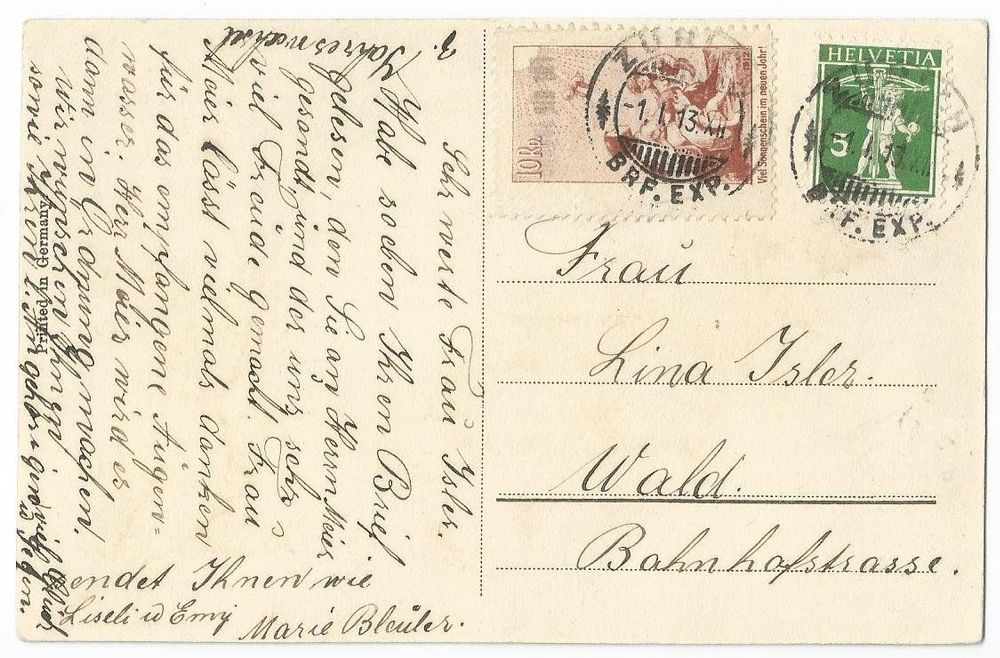 Sehr werte Frau Isler.
Habe soeben Ihren Brief
gelesen, den Sie an Herrn Meier
gesandt und der uns sehr
viel Freude gemacht. Frau
Meier lässt vielmals danken
für das empfangene Augen-
wasser. Herr Meier wird es
dann in Ordnung machen.
Wir wünschen Ihnen
sowie Ihren l. Angehörigen viel Glück
u Segen.
z. Jahreswechsel
sendet Ihnen wie
Liseli u Emy
Marie Bleuler.
Printed in Germany
10 Rp.
Viel Sonnenschein im neuen Jahr!
ZÜRICH
-1.I.13.XII
BRF. EXP.
HELVETIA
5
ZÜRICH
-1.I.13.XII
BRF. EXP.
Frau
Lina Isler.
Wald.
Bahnhofstrasse.